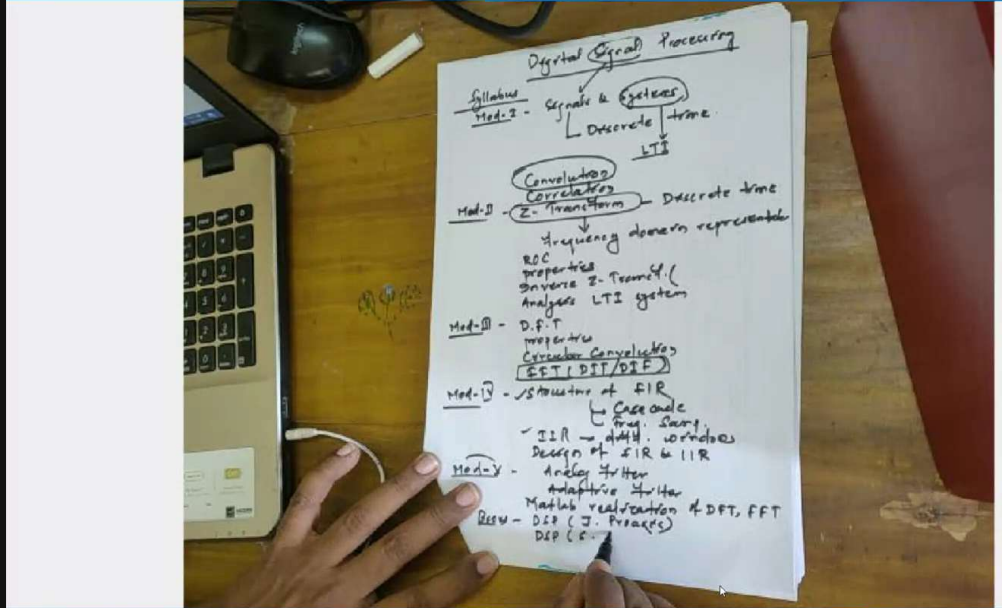 Digital Signal Processing
Syllabus
Mod-I - Signals & Systems
Discrete time
LTI
Convolution
Correlation
Mod-II - Z-Transform - Discrete time
frequency domain
ROC
properties
Inverse Z-Transf.
Analysis LTI system
Mod-III - D.F.T
properties
Circular Convolution
FFT (DIT/DIF)
Mod-IV - Structure of FIR
Cascade
freq. Samp.
IIR windows
Design of FIR & IIR
Mod-V - Analog filter
Adaptive filter
Matlab realization of DFT, FFT
DSP (J. Proakis)
DSP (S.